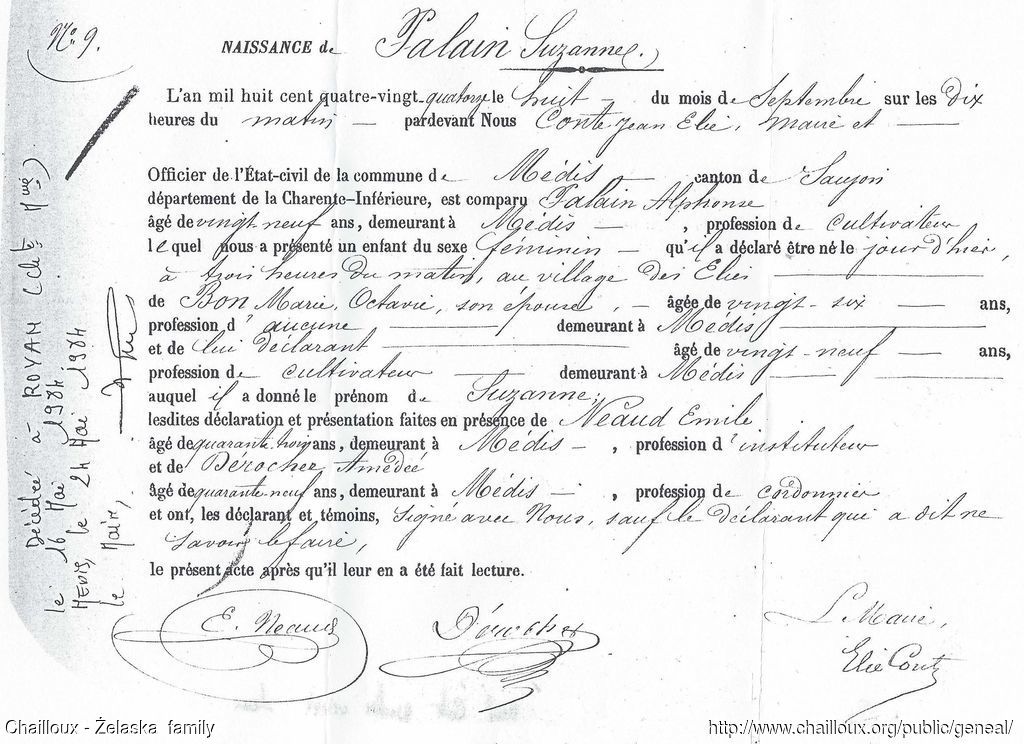 No. 9.
NAISSANCE de Palain Suzanne.
L'an mil huit cent quatre-vingt-quatorze le huit du mois de Septembre sur les Dix
heures du matin pardevant Nous Conte Jean Elie, maire et
Officier de l'État-civil de la commune de Médis canton de Saujon
département de la Charente-Inférieure, est comparu Palain Alphonse
âgé de vingt-neuf ans, demeurant à Médis, profession de cultivateur
lequel nous a présenté un enfant du sexe féminin qu'il a déclaré être né le jour d'hier,
à trois heures du matin, au village des Elies
de Bon Marie Octavie, son épouse, âgée de vingt-six ans,
profession d'aucune demeurant à Médis
et de lui déclarant âgé de vingt-neuf ans,
profession de cultivateur demeurant à Médis
auquel il a donné le prénom de Suzanne,
lesdites déclaration et présentation faites en présence de Neaud Emile
âgé de quarante-trois ans, demeurant à Médis, profession d'instituteur
et de Bérocher Amédée
âgé de quarante-neuf ans, demeurant à Médis, profession de cordonnier
et ont, les déclarant et témoins, signé avec Nous, sauf le déclarant qui a dit ne
savoir le faire,
le présent acte après qu'il leur en a été fait lecture.
E. Neaud
Bérocher
L. Maire,
Elie Conte
Décédée à ROYAN (Chte Mme)
le 16 Mai 1984
MEDIS, le 24 Mai 1984
le Maire,
Chailloux - Želaska family
http://www.chailloux.org/public/geneal/